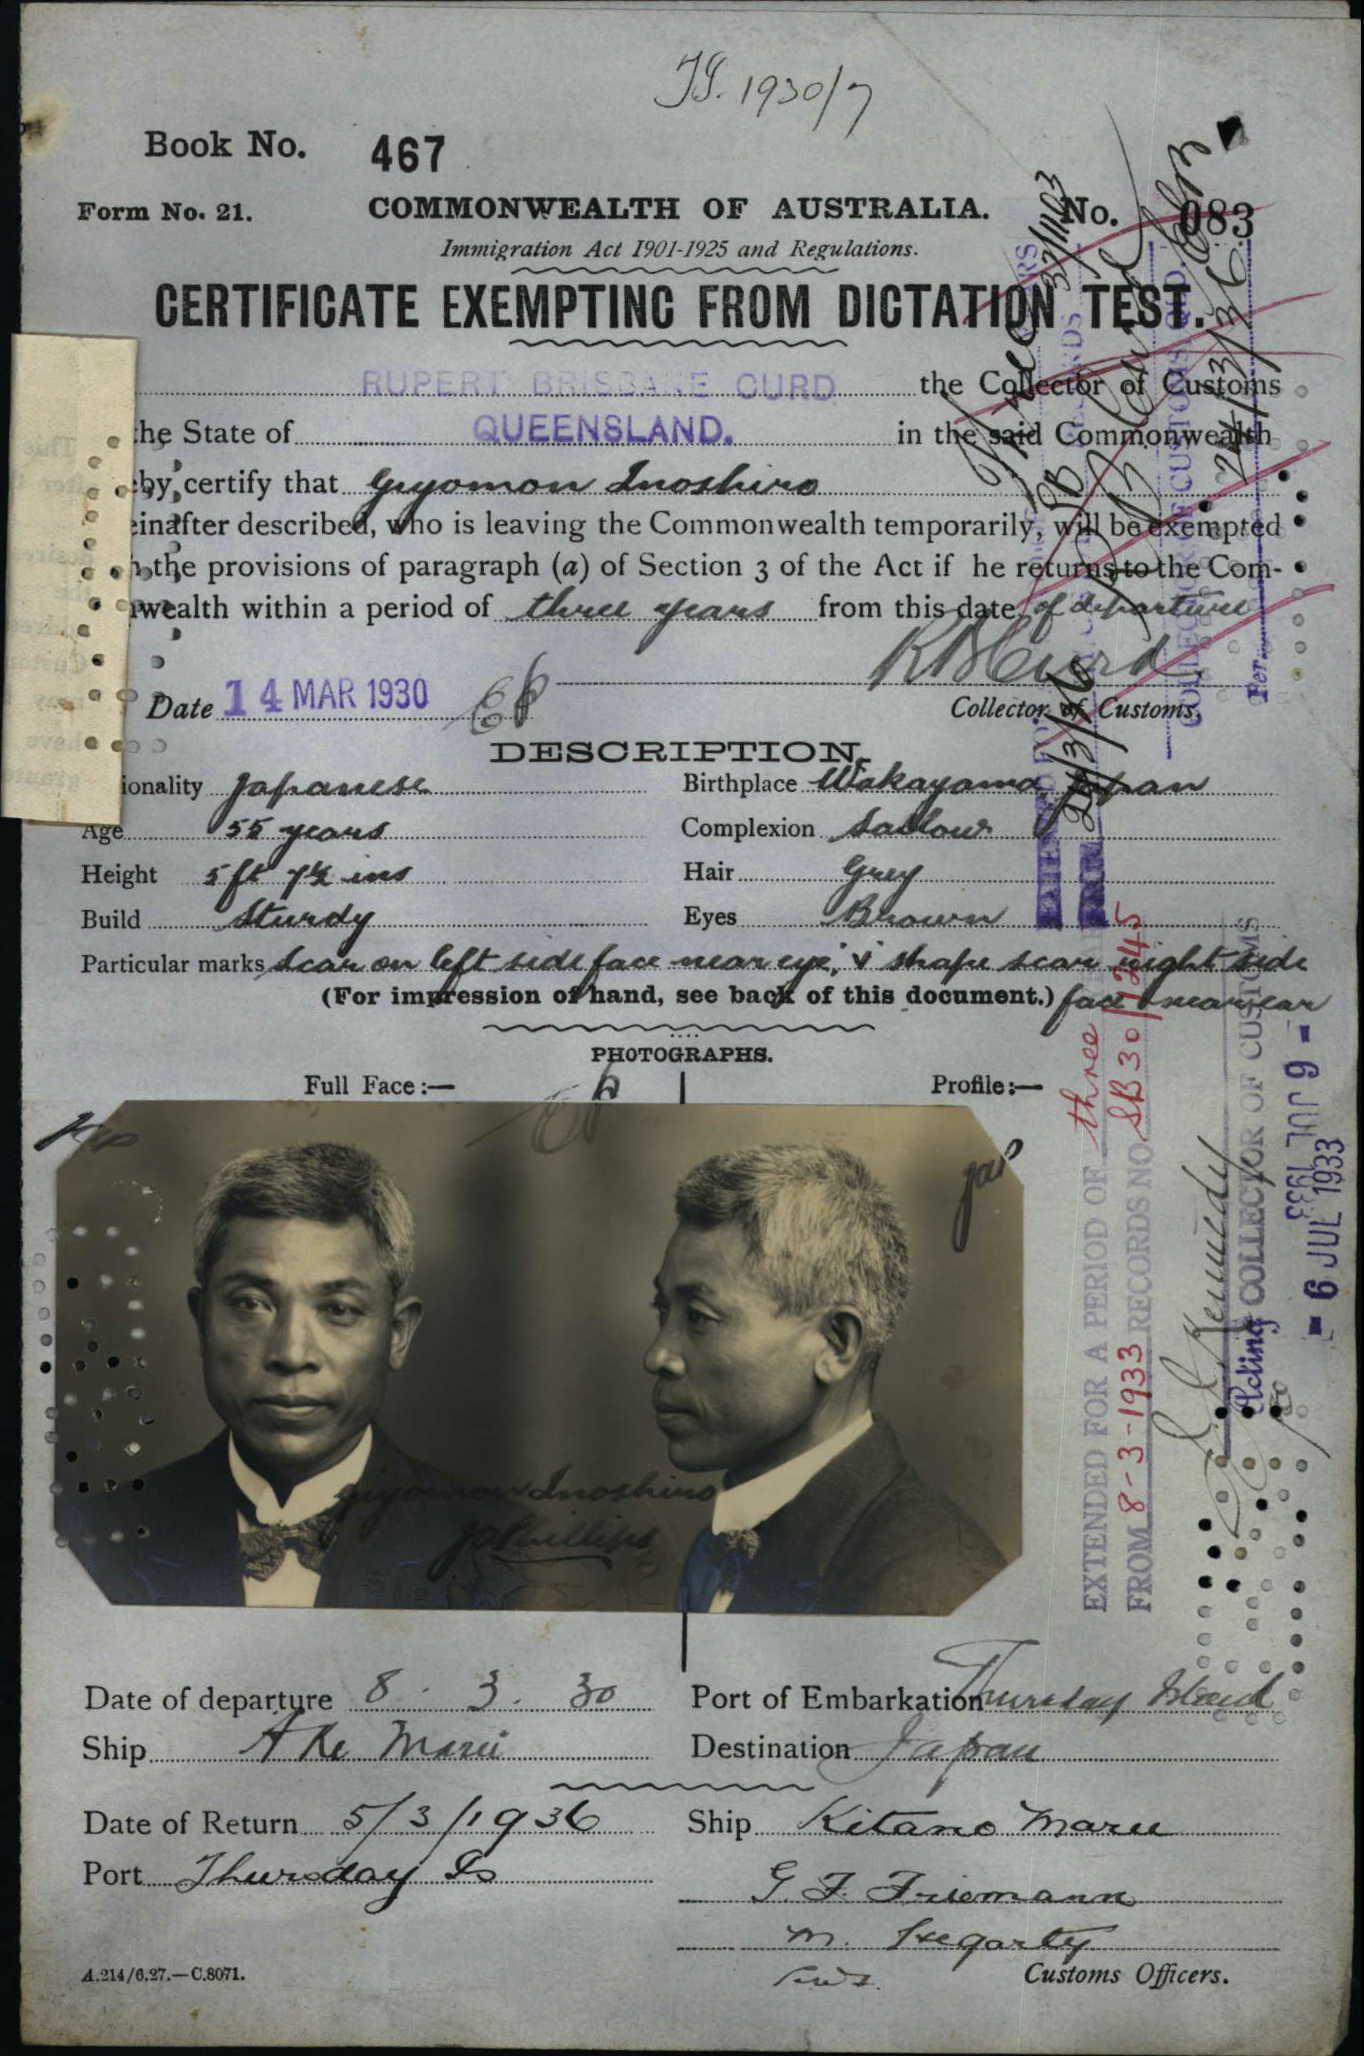 TI. 1930/7
Book No. 467
Form No. 21. COMMONWEALTH OF AUSTRALIA. No. 083
Immigration Act 1901-1925 and Regulations.
CERTIFICATE EXEMPTING FROM DICTATION TEST.
RUPERT BRISBANE CURD the Collector of Customs
the State of QUEENSLAND. in the said Commonwealth
by certify that Giyomon Inoshiro
einafter described, who is leaving the Commonwealth temporarily, will be exempted
the provisions of paragraph (a) of Section 3 of the Act if he returns to the Com-
wealth within a period of three years from this date of departure
R B Curd
Date 14 MAR 1930 Collector of Customs.
DESCRIPTION.
ionality Japanese Birthplace Wakayama, Japan
Age 55 years Complexion Sallow
Height 5 ft 7½ ins Hair Grey
Build Sturdy Eyes Brown
Particular marks Scar on left side face near eye; v shape scar right side
(For impression of hand, see back of this document.) face near ear
PHOTOGRAPHS.
Full Face:— Profile:—
Giyomon Inoshiro
Date of departure 8. 3. 30 Port of Embarkation Thursday Island
Ship Aki Maru Destination Japan
Date of Return 5/3/1936 Ship Kitano Maru
Port Thursday Is
G. F. Friemann
M. Hegarty
A.214/6.27.—C.8071. Customs Officers.
EXTENDED FOR A PERIOD OF three
FROM 8-3-1933 RECORDS NO SB30/1245
Kennedy
Acting COLLECTOR OF CUSTOMS
- 6 JUL 1933
- 6 JUL 1933
Three
COLLECTOR OF CUSTOMS, QLD.
24/3/36
Per